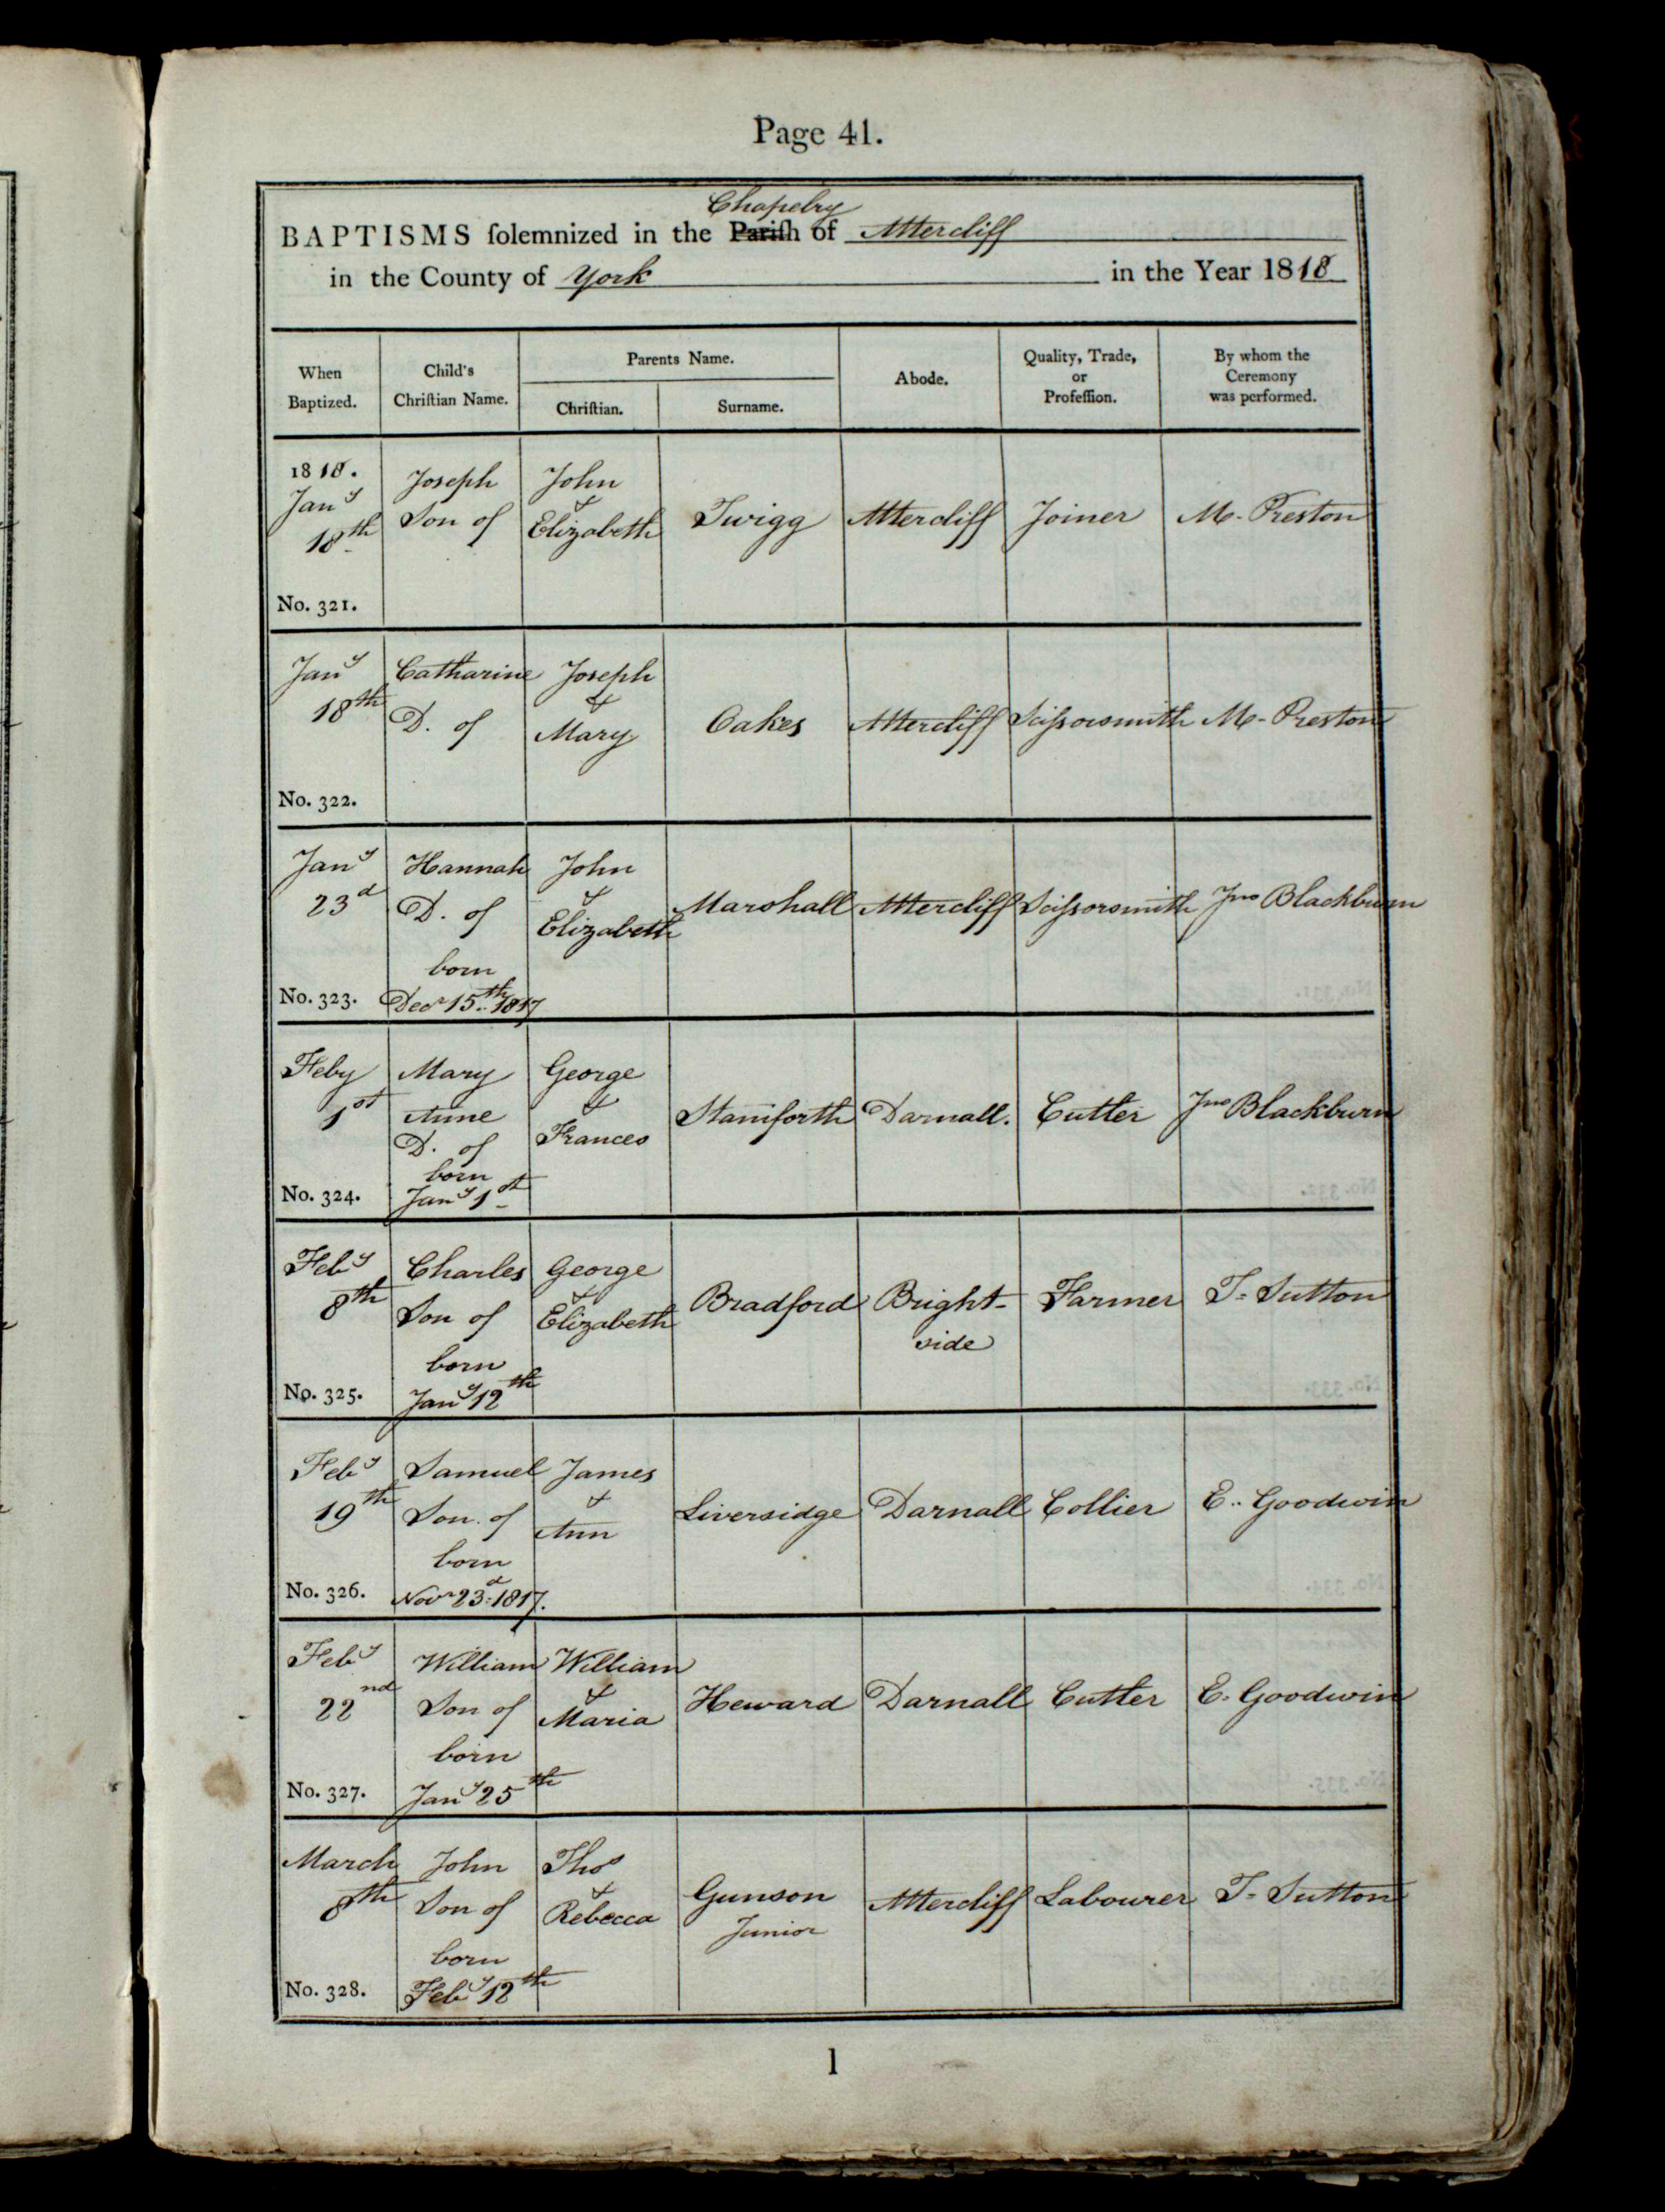 Page 41.
Chapelry
BAPTISMS ſolemnized in the Pariſh of Attercliff
in the County of York in the Year 1818
When Baptized.
Child's Chriſtian Name.
Parents Name.
Chriſtian.
Surname.
Abode.
Quality, Trade, or Profeſſion.
By whom the Ceremony was performed.
1818.
Jany
18th
No. 321.
Joseph
Son of
John
&
Elizabeth
Twigg
Attercliff
Joiner
M. Preston
Jany
18th
No. 322.
Catharine
D. of
Joseph
&
Mary
Oakes
Attercliff
Scissorsmith
M. Preston
Jany
23d
No. 323.
Hannah
D. of
born
Decr 15th 1817
John
&
Elizabeth
Marshall
Attercliff
Scissorsmith
Jno Blackburn
Feby
1st
No. 324.
Mary
Anne
D. of
born
Jany 1st
George
&
Frances
Staniforth
Darnall.
Cutler
Jno Blackburn
Feby
8th
No. 325.
Charles
Son of
born
Jany 12th
George
&
Elizabeth
Bradford
Bright-
side
Farmer
T. Sutton
Feby
19th
No. 326.
Samuel
Son of
born
Novr 23d 1817.
James
&
Ann
Liversidge
Darnall
Collier
E. Goodwin
Feby
22nd
No. 327.
William
Son of
born
Jany 25th
William
&
Maria
Heward
Darnall
Cutler
E. Goodwin
March
8th
No. 328.
John
Son of
born
Feby 12th
Thos
&
Rebecca
Gunson
Junior
Attercliff
Labourer
T. Sutton
l